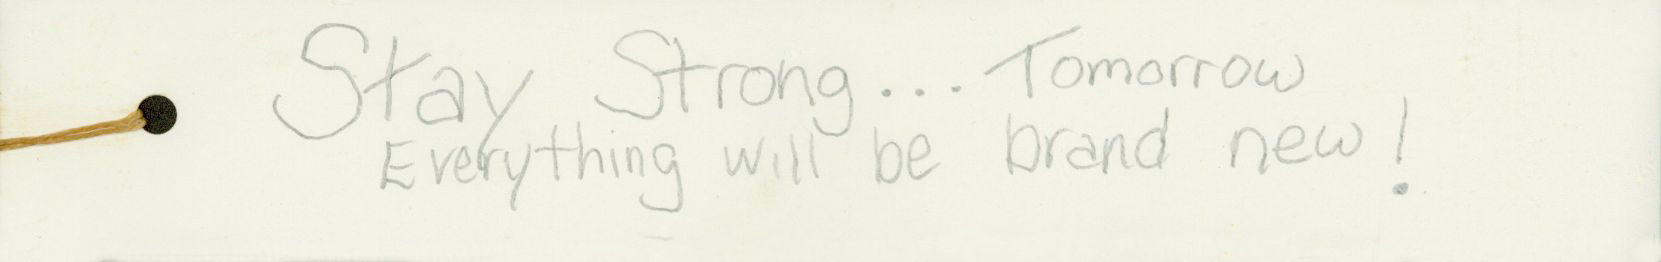 Stay Strong... Tomorrow
Everything will be brand new!